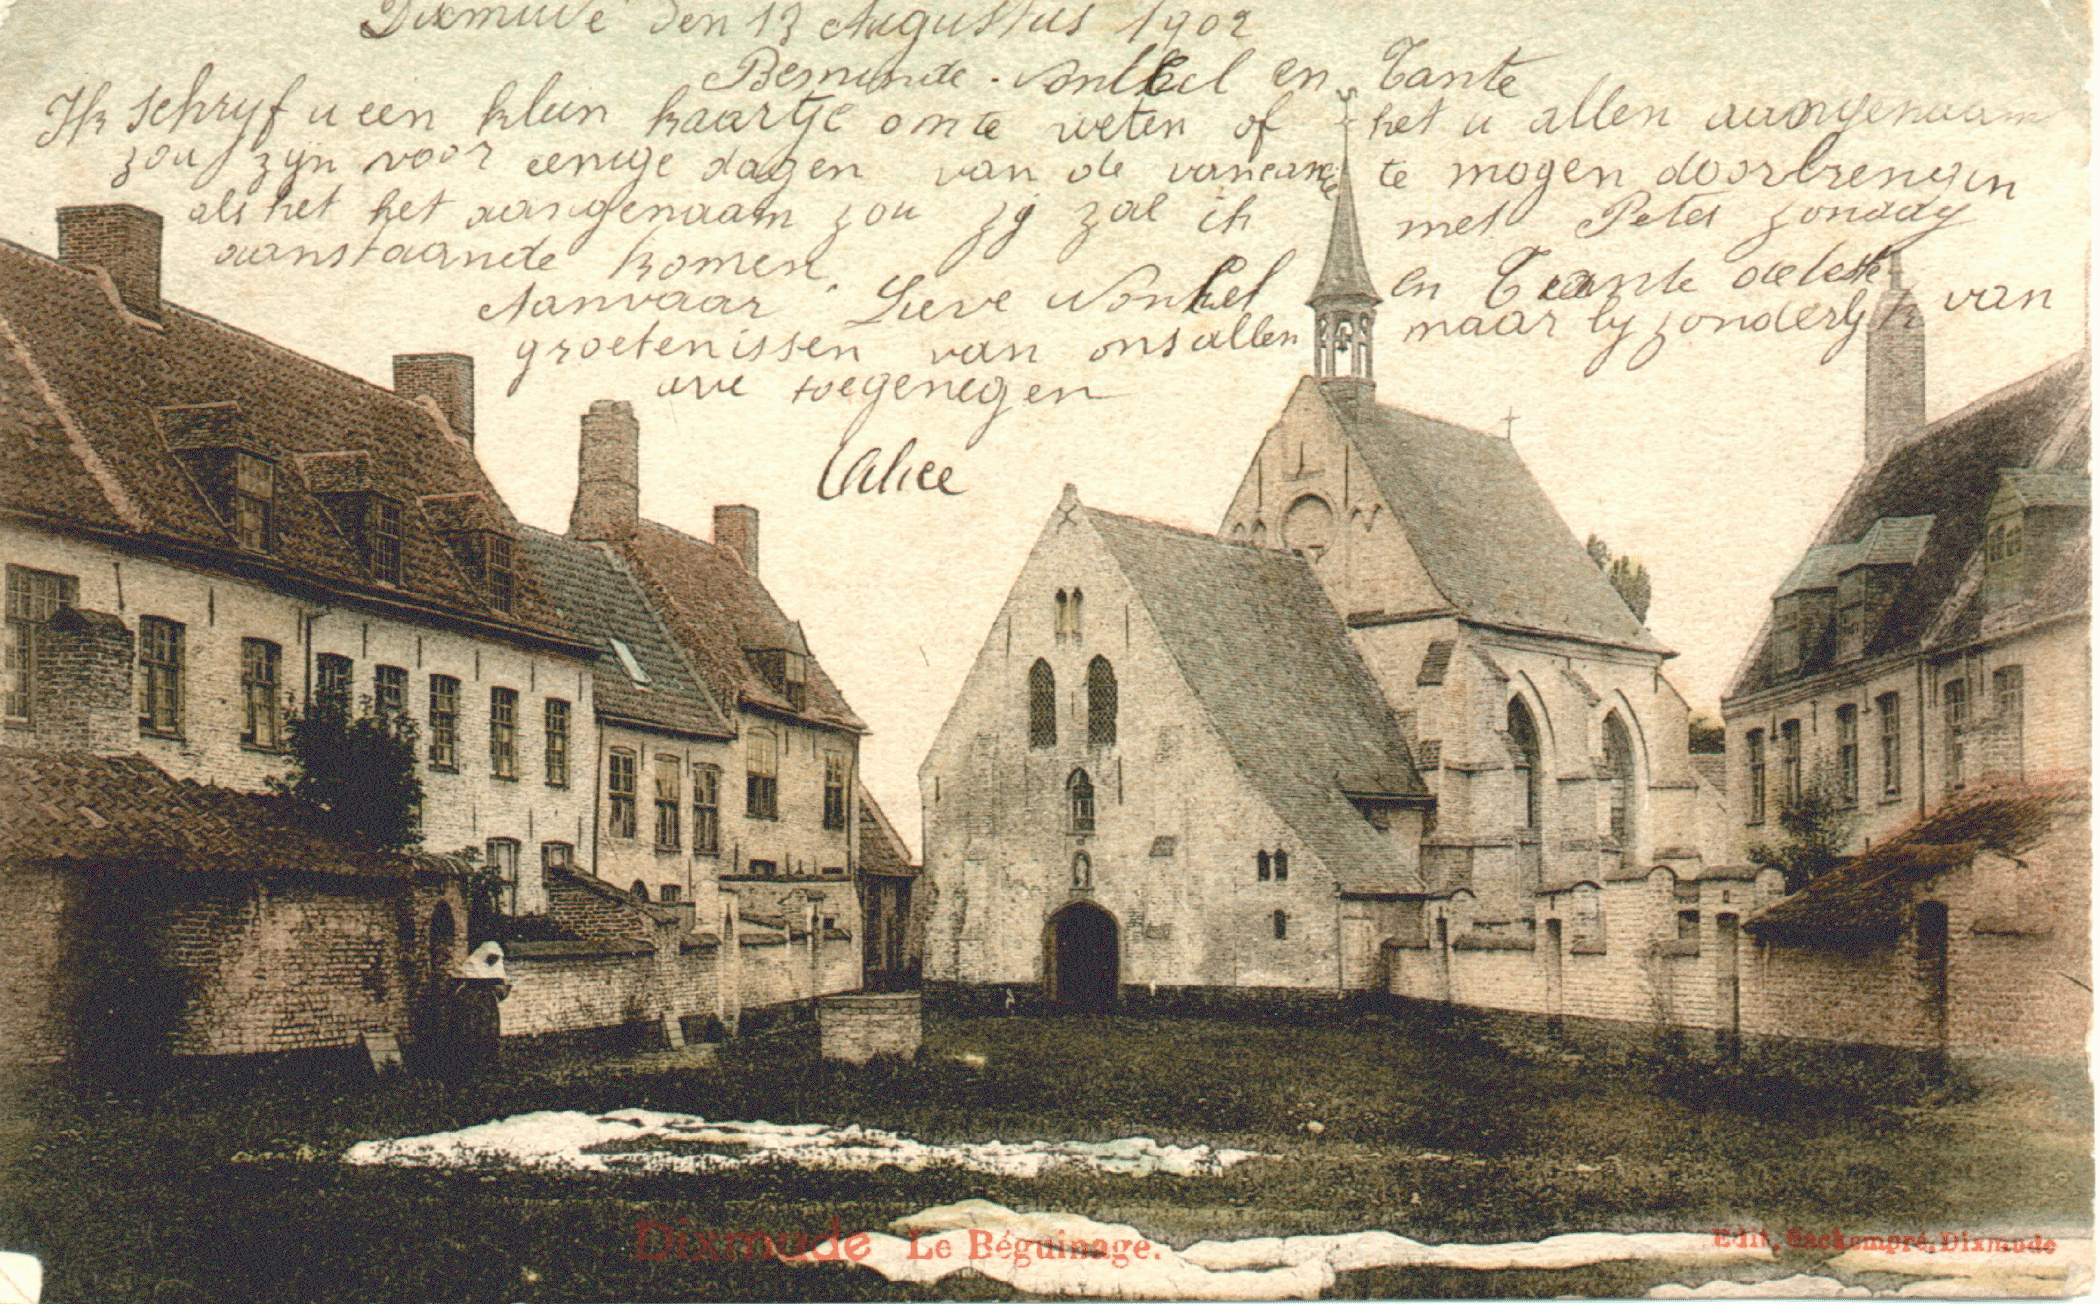 Dixmude den 13 Augustus 1902
Beminde Nonkel en Tante
Ik schryf u een klein kaartje omte weten of het u allen aangenaam
zou zyn voor eenige dagen van de vancance te mogen doorbrengen
als het het aangenaam zou zy zal ik met Peter zondag
aanstaande komen
Aanvaar Lieve Nonkel en Tante de beste
groetenissen van ons allen maar byzonderlyk van
uwe toegenegen
Alice
Dixmude Le Béguinage.
Edit. Sackompré, Dixmude